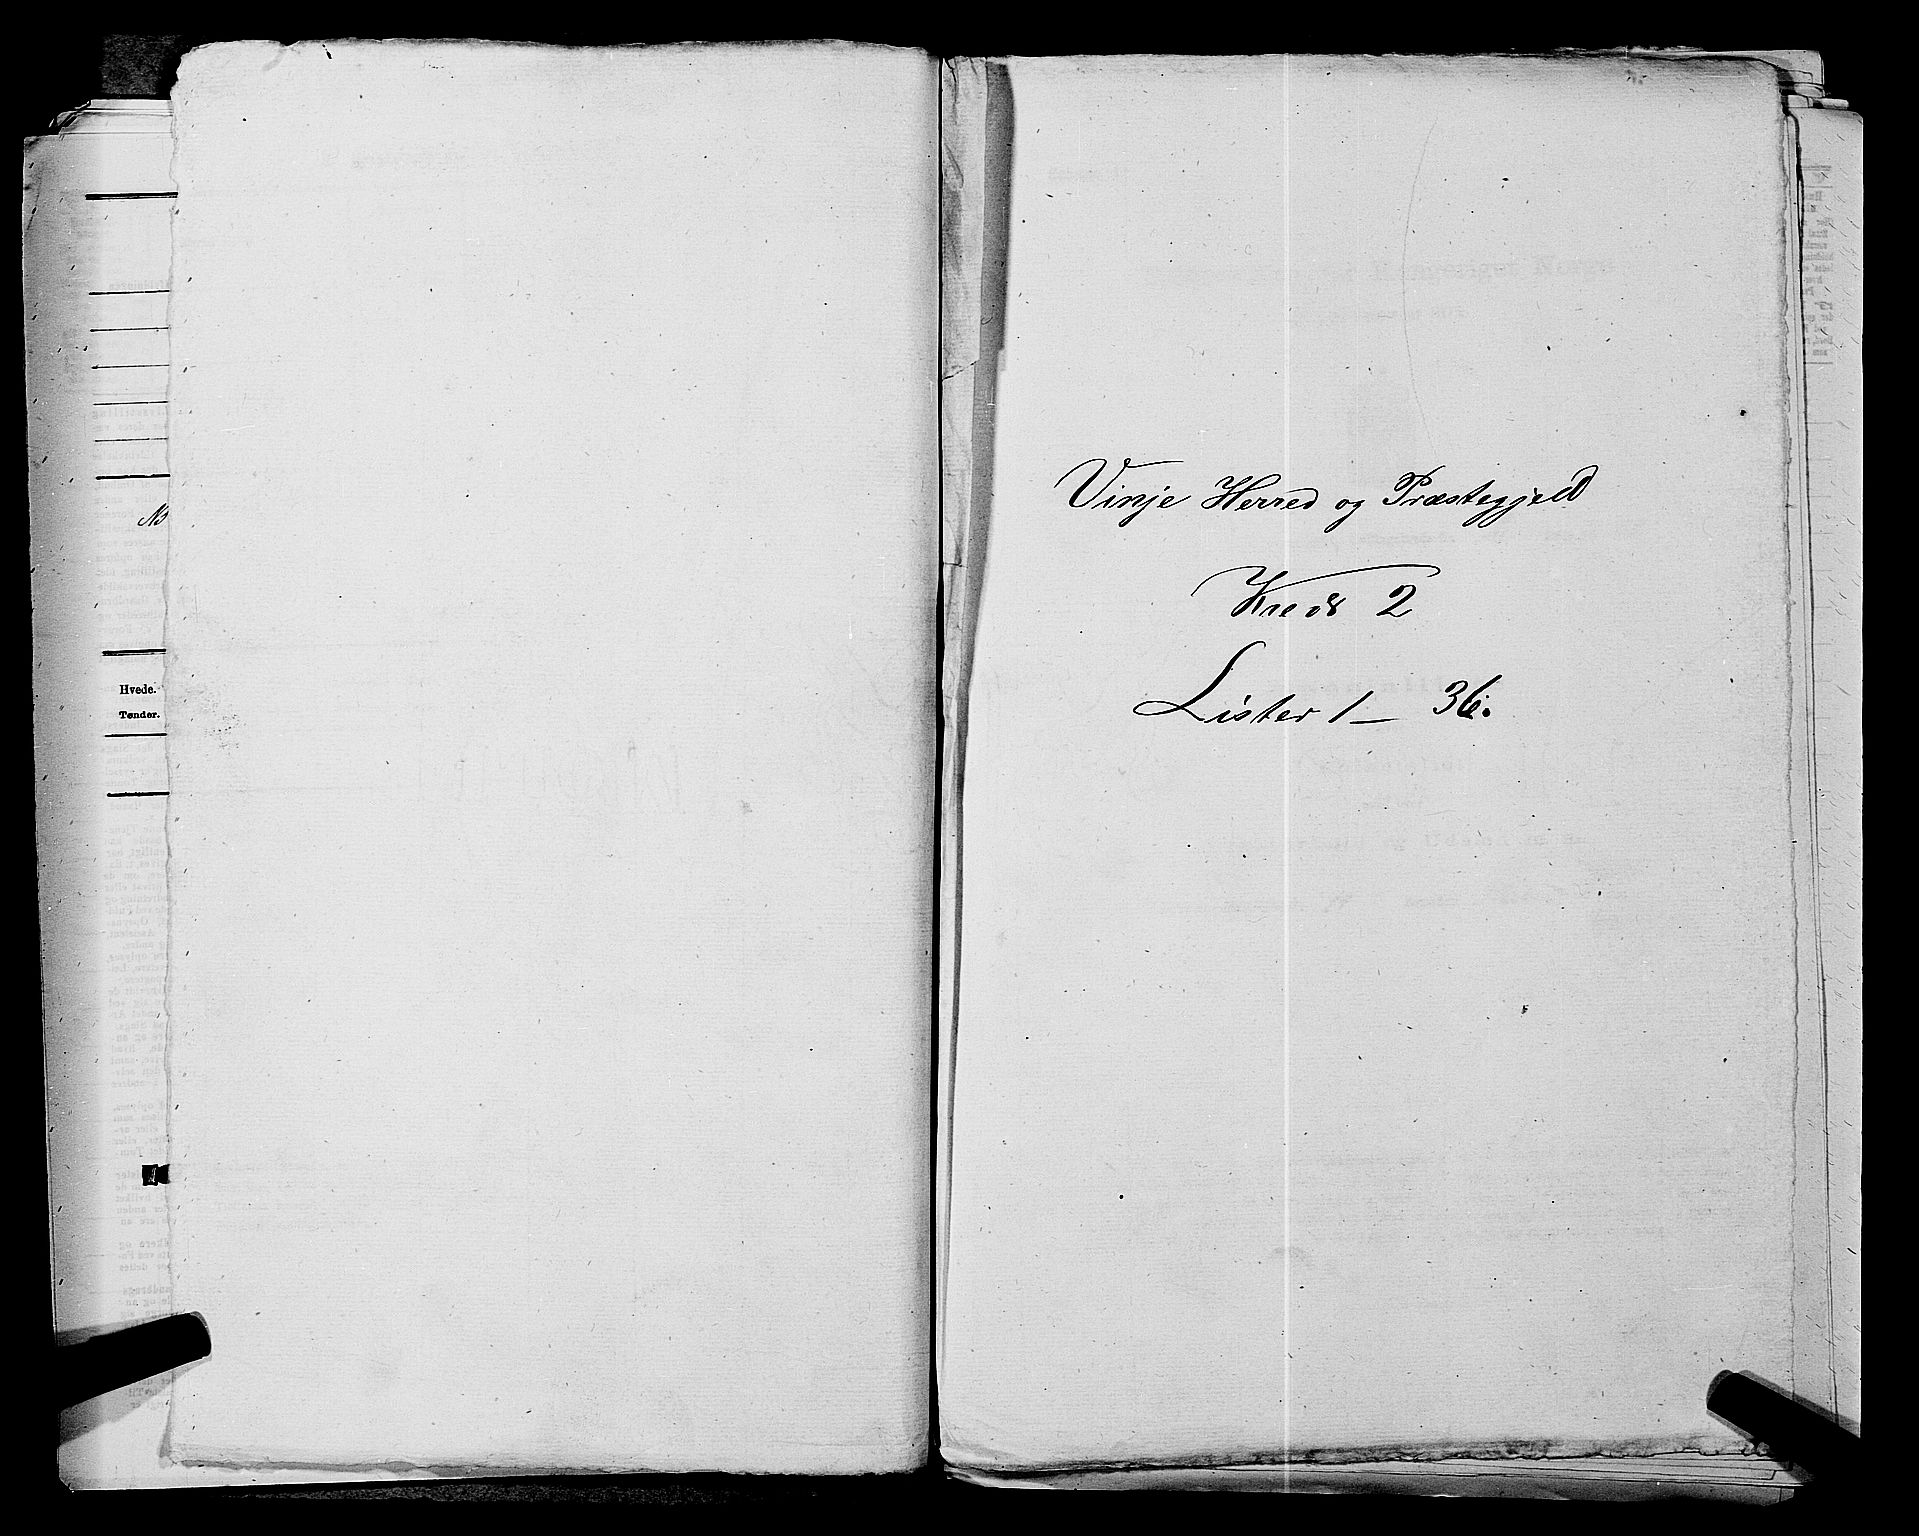 Hvede.
Tønder.
Vinje Herred og Præstegjeld
Kreds 2
Lister 1 — 36.